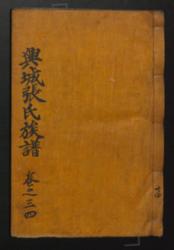 興城張氏族譜
卷之三四